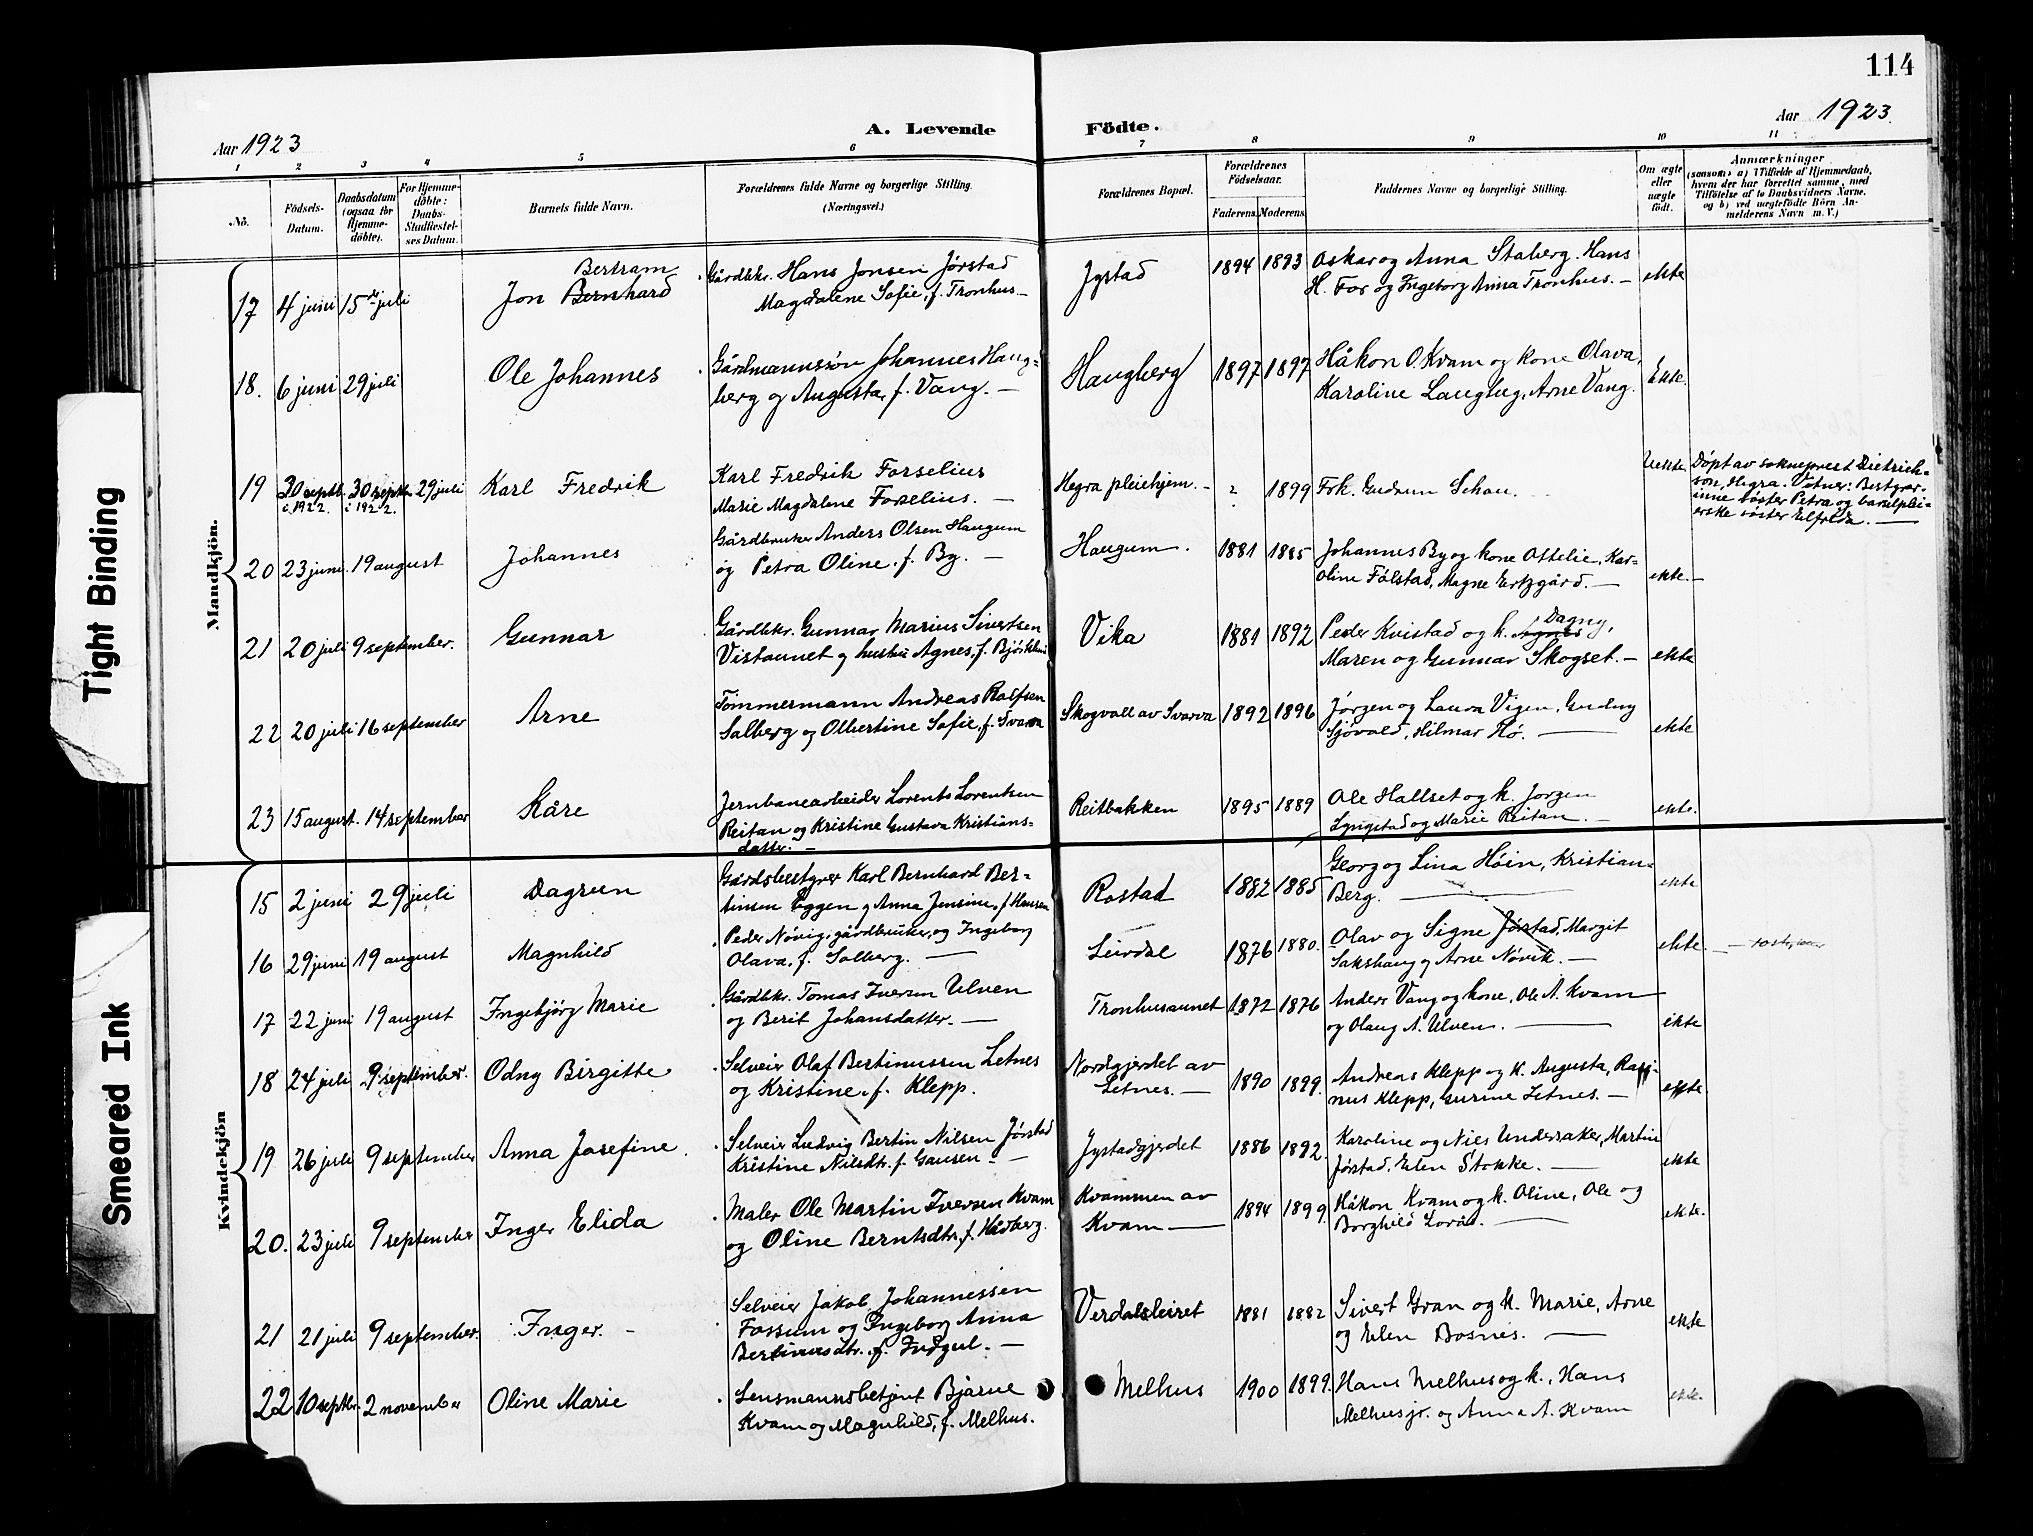 114
Aar 1923
A. Levende Födte.
Aar 1923.
1 2 3 4 5 6 7 8 9 10 11
No.
Födsels-
Datum.
Daabsdatum
(ogsaa for
Hjemme-
döbte).
For Hjemme-
döbte:
Daabs-
Stadfæstel-
ses Datum.
Barnets fulde Navn.
Forældrenes fulde Navne og borgerlige Stilling.
(Næringsvei.)
Forældrenes Bopæl.
Forældrenes
Fødselsaar.
Faderens. Moderens.
Faddernes Navne og borgerlige Stilling.
Om ægte
eller
uægte
födt.
Anmærkninger
(saasom: a) i Tilfælde af Hjemmedaab,
hvem der har forrettet samme, med
Tilföielse af to Daabsvidners Navne.
og b) ved uægtefödte Börn An-
melderens Navn m. V.)
Mandkjön.
17 4 juni 15de juli
Bertram
Jon Bernhard
Gårdbkr. Hans Jonsen Jørstad
Magdalene Sofie, f. Tronhus.—
Jystad
1894 1893
Oskar og Anna Staberg. Hans
H. For og Ingeborg Anna Tronhus.—
ekte
18. 6 juni 29 juli
Ole Johannes
Gårdmannssøn Johannes Haug-
berg og Augusta, f. Vang.—
Haugberg
1897 1897
Håkon O. Kvam og kone Olava,
Karoline Langberg, Arne Vang.
Ekte.
19 30 septb. i 1922. 30 septbr. i 1922. 29 juli
Karl Fredrik
Karl Fredrik Forselius
Marie Magdalene Forselius.—
Hegra pleiehjem.
? 1899
Frk. Gudrun Schau.
Uekte
Døpt av sokneprest Dietrich-
son, Hegra. Vitner: Bestyrer-
inne søster Petra og barselplei-
erske søster Elfrida.—
20 23 juni. 19 august
Johannes
Gårdbruker Anders Olsen Haugum
og Petra Oline, f. By.—
Haugum.
1881 1885
Johannes By og kone Ottelie, Kar-
oline Fålstad, Magne Ertzgård.—
ekte.—
21 20 juli 9 september.
Gunnar
Gårdbkr. Gunnar Marius Sivertsen
Vistaunet og hustru Agnes, f.
Vika
1881 1892
Peder Kvistad og k. Agnes Dagny,
Maren og Gunnar Skogset.—
ekte
22 20 juli 16 september
Arne
Tømmermann Andreas Rolfsen
Salberg og Olbertine Sofie, f. Svarva
Skogvoll av Svarva
1892 1896
Jørgen og Laura Vigen, Gudny
Sjøvold, Hilmar Hø.—
ekte
23 15 august. 14 september
Kåre
Jernbanearbeider Lorents Lorentsen
Reitan og Kristine Gustava Kristians-
datter.—
Reitbakken
1895 1889
Ole Hallset og k. Jørgen
Lyngstad og Marie Reitan.—
ekte.
Kvindekjön
15 2 juni 29 juli
Dagrun
Gårdsbestyrer Karl Bernhard Ber-
tinsen Eggen og Anna Jensine, f. Hansen
Rostad
1882 1885
Georg og Lina Høin, Kristian
Berg.—
ekte
16 29 juni 19 august
Magnhild
Peder Nøvig, gårdbruker, og Ingeborg
Olava, f. Salberg.—
Leirdal
1876 1880.
Olav og Signe Jørstad, Margit
Sakshaug og Arne Nøvik.—
ekte
17 22 juni 19 august
Ingebjørg Marie
Gårdbkr. Tomas Iversen Ulven
og Berit Johansdatter.—
Tronhusaunet
1872 1876
Anders Vang og kone, Ole A. Kvam
og Olaug A. Ulven.—
ekte
18 24 juli 9 september.
Odny Birgitte
Selveier Olaf Bertinussen Letnes
og Kristine, f. Klepp.
Nordgjerdet av
Letnes.—
1890 1899.
Andreas Klepp og k. Augusta, Rasi-
nus Klepp, Gurine Letnes.—
ekte
19 26 juli 9 september
Anna Josefine.
Selveier Ludvig Bertin Nilsen Jørstad
Kristine Nilsdtr. f. Gausen.—
Jystadgjerdet
1886 1892.
Karoline og Nies Undersaker, Martin
Jørstad, Elen Stokke.—
ekte
20. 23 juli 9 september
Inger Elida
Maler Ole Martin Iversen Kvam
og Oline Berntsdtr, f. Hårberg.
Kvammen av
Kvam—
1894 1899.
Håkon Kvam og k. Oline, Ole og
Borghild Lorås.—
ekte.
21 21 juli 9 september.
Inger.—
Selveier Jakob Johannessen
Fossum og Ingeborg Anna
Bertinusdtr. f. Indgul.—
Verdalsleiret
1881 1882
Sivert Gran og k. Marie, Arne
og Elen Bosnes.—
ekte
22 10 septbr. 2 november
Oline Marie
Lensmannsbetjent Bjarne
Kvam og Magnhild, f. Melhus.
Melhus
1900 1899.
Hans Melhus og k., Hans
Melhus jr. og Anna A. Kvam
ekte.
Tight Binding
Smeared Ink